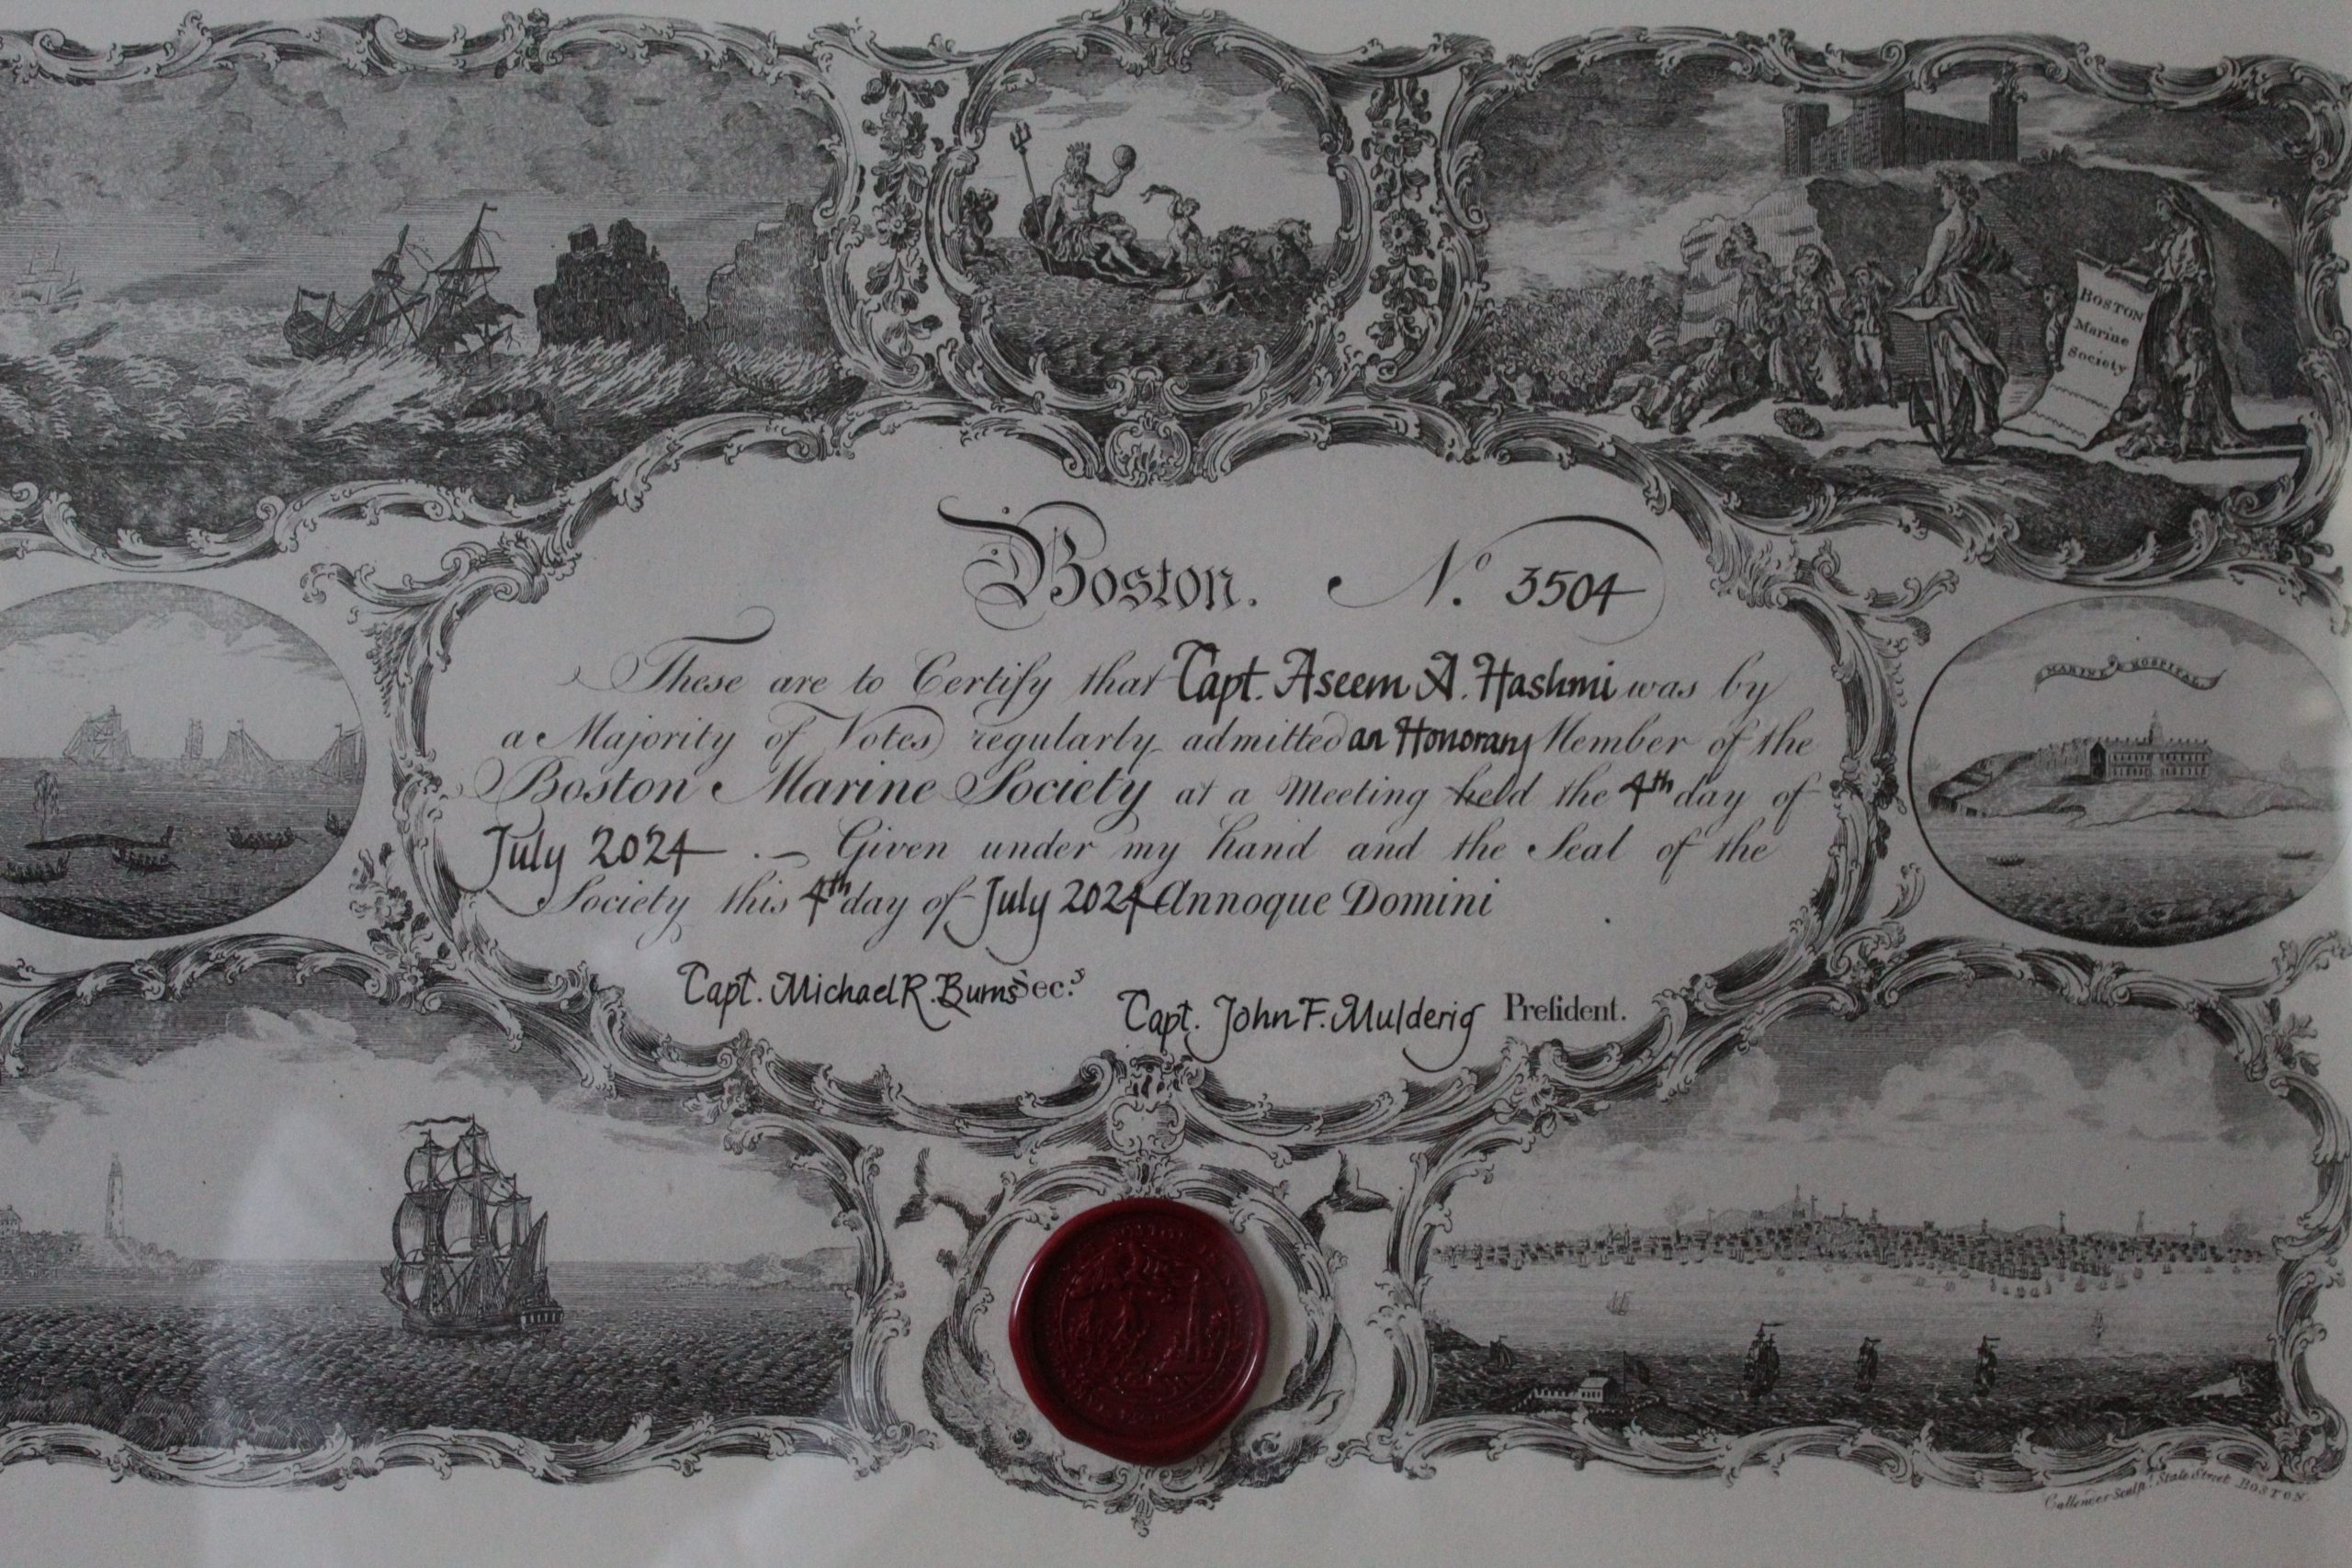 BOSTON
Marine
Society
Boston. No. 3504
MARINE HOSPITAL.
These are to Certify that Capt. Aseem A. Hashmi was by
a Majority of Votes regularly admitted an Honorary Member of the
Boston Marine Society at a Meeting held the 4th day of
July 2024 . — Given under my hand and the Seal of the
Society this 4th day of July 2024 Annoque Domini
Capt. Michael R. Burns Sec.y
Capt. John F. Mulderig Preſident.
Callender Sculp.t State Street BOSTON.